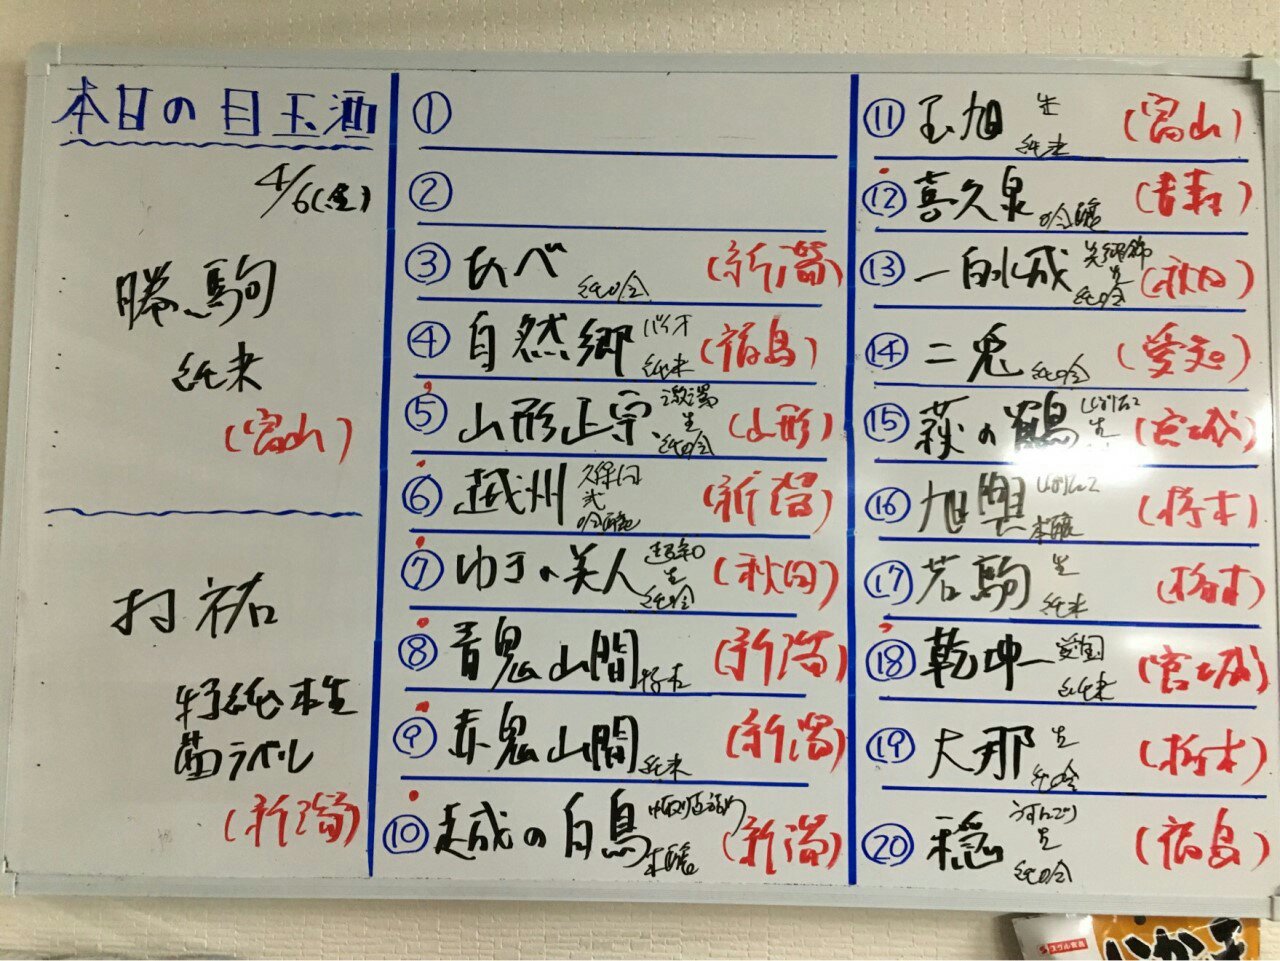 本日の目玉酒
4/6(金)
勝駒
純米
(富山)
村祐
特純本生
茜ラベル
(新潟)
①
②
③ あべ 純吟 (新潟)
④ 自然郷 バイオ 純米 (福島)
⑤ 山形正宗 生 純吟 (山形)
⑥ 越州 久保田 弐 吟醸 (新潟)
⑦ ゆきの美人 超辛口 生 純吟 (秋田)
⑧ 青鬼山間 特本 (新潟)
⑨ 赤鬼山間 純米 (新潟)
⑩ 越の白鳥 中取り直詰め 本醸 (新潟)
⑪ 玉旭 生 純米 (富山)
⑫ 喜久泉 吟醸 (青森)
⑬ 一白水成 美郷錦 生 純吟 (秋田)
⑭ 二兎 純吟 (愛知)
⑮ 萩の鶴 しぼりたて 生 (宮城)
⑯ 旭興 しぼりたて 本醸 (栃木)
⑰ 若駒 生 純米 (栃木)
⑱ 乾坤一 愛国 純米 (宮城)
⑲ 大那 生 純吟 (栃木)
⑳ 穏 うすにごり 生 純吟 (福島)
スグル食品
いか